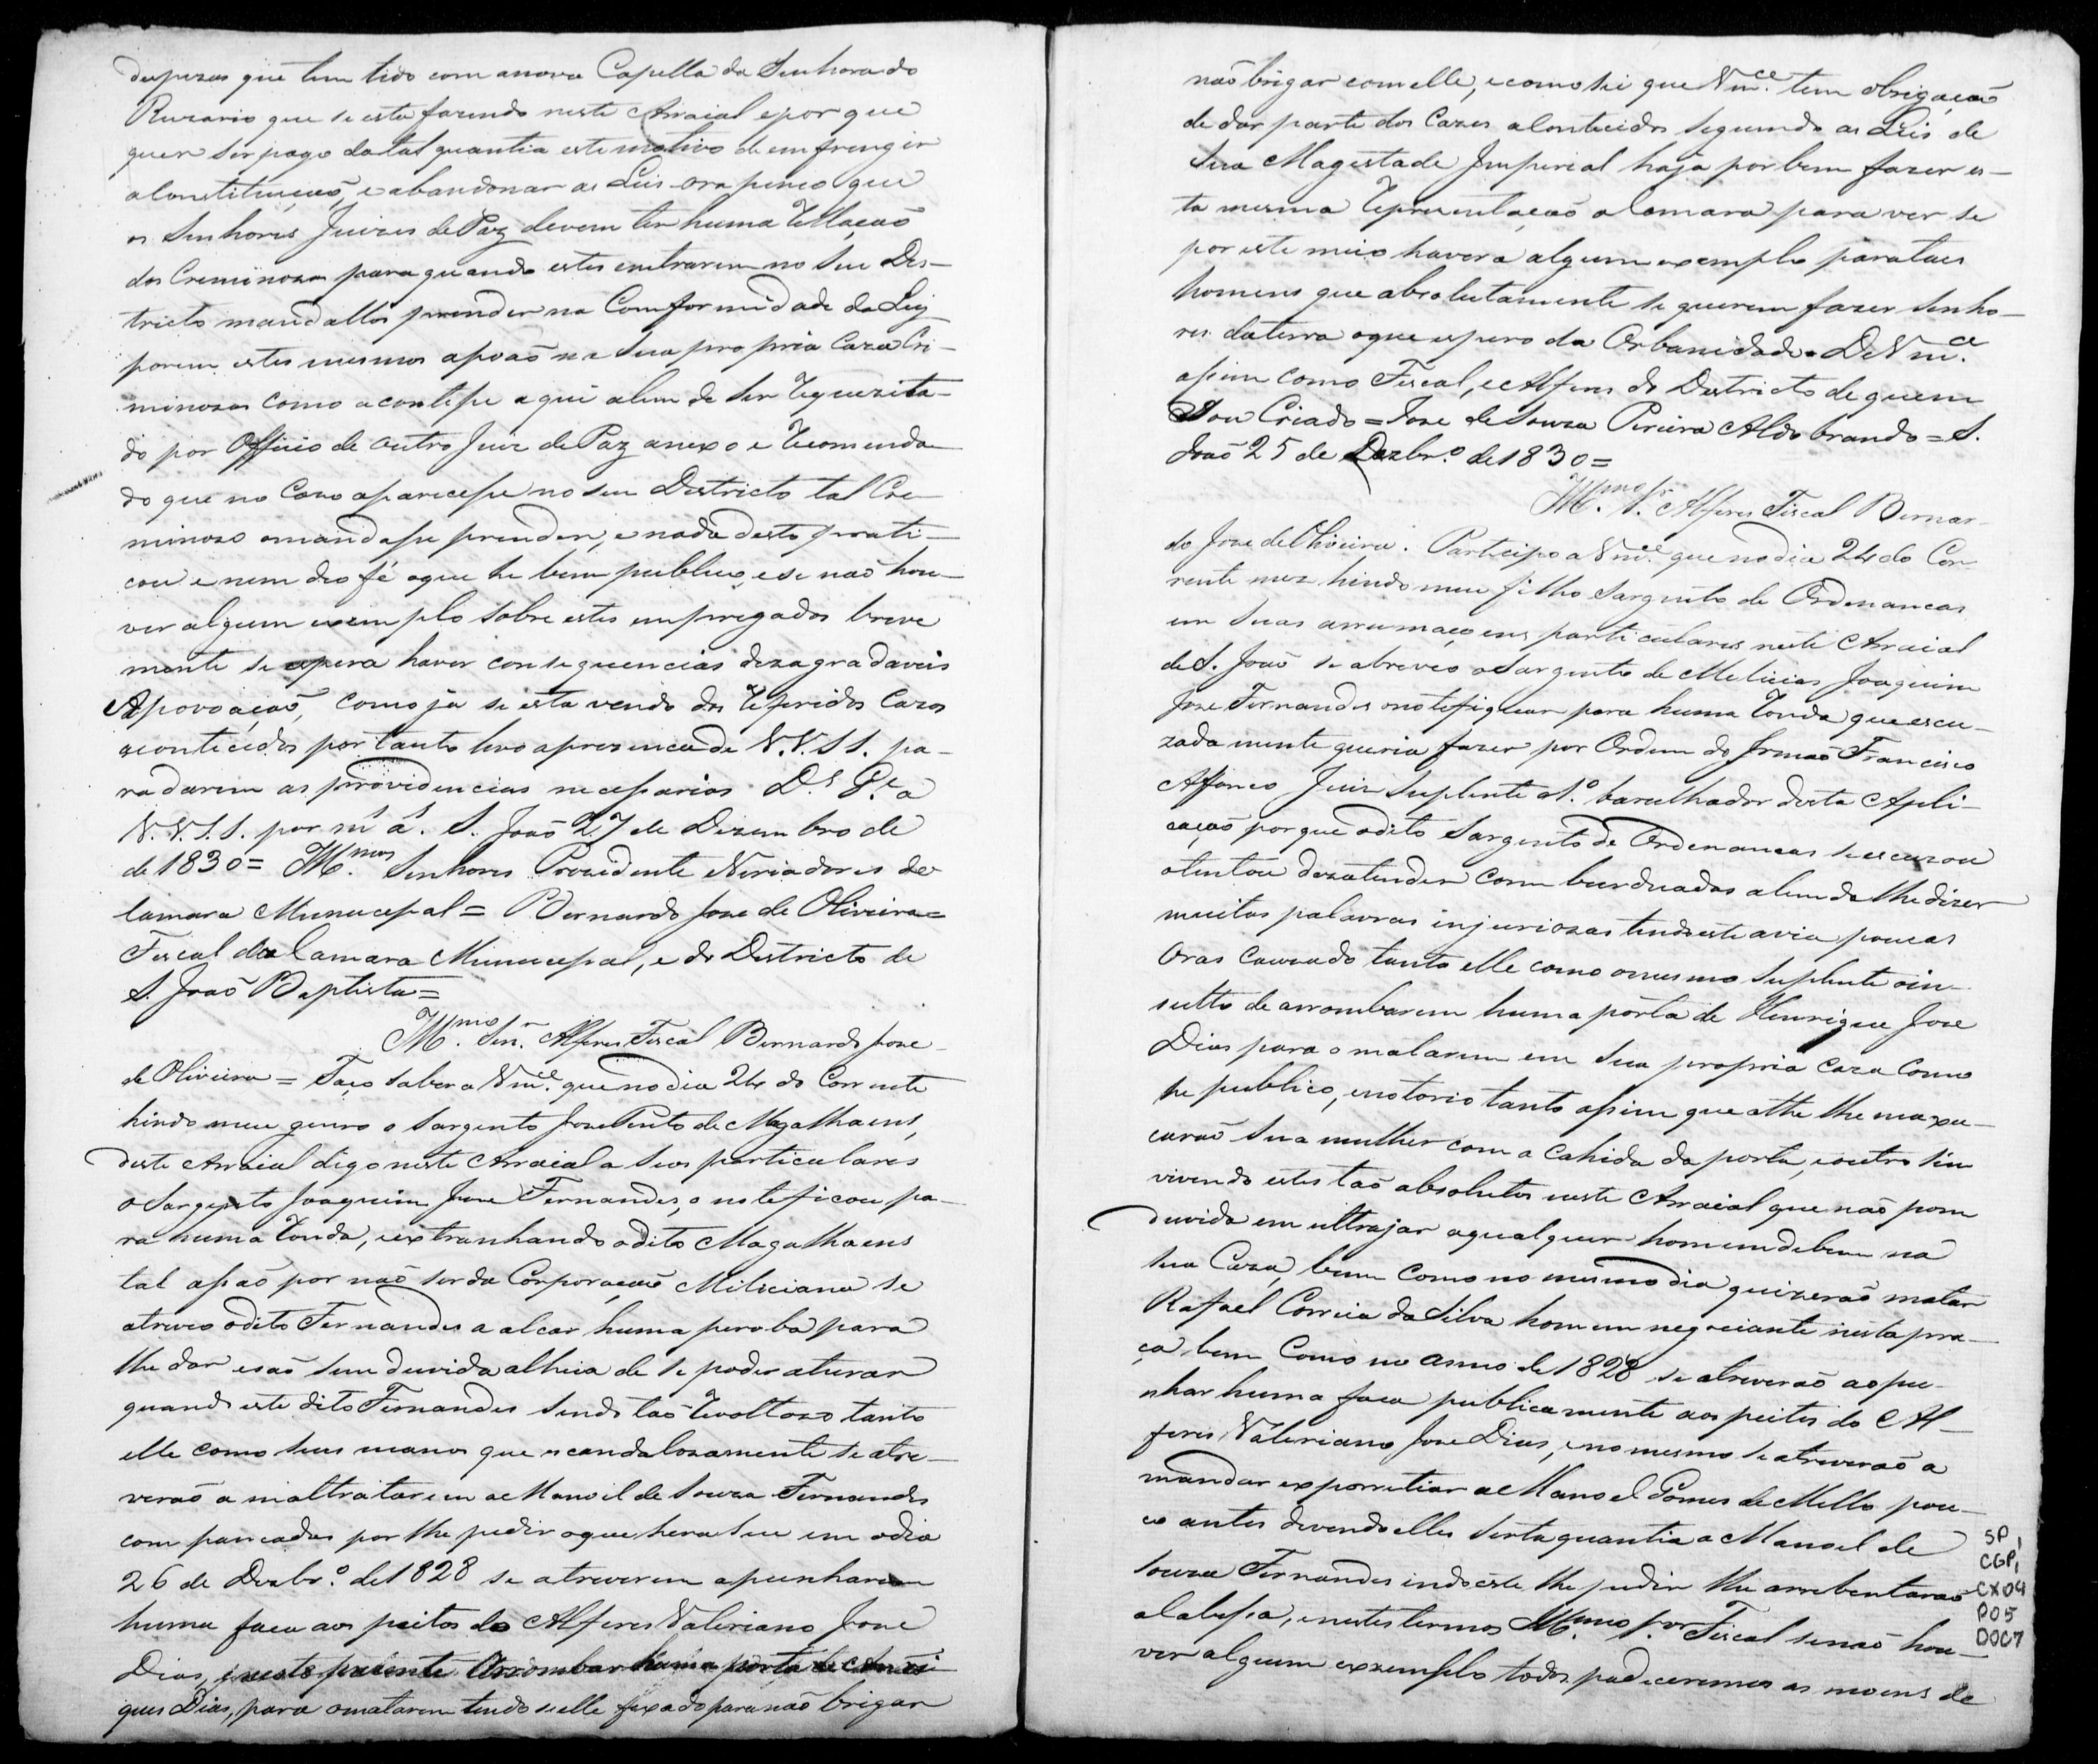 despezas que tem tido com anova Capella da Senhora do
Ruzario que se esta fazendo neste Arraial epor que
quer ser pago da tal quantia este motivo de emfrengir
aConstituiçaõ, e abandonar as Leis ora penço que
os Senhores Juizes de Paz devem ter huma Rellaçaõ
dos Creminozos para quando estes entrarem no seu Des-
tricto mandallos prender na Comformidade da Ley
porem estes mesmos apoaõ na sua propria Caza Cri-
minozos como acontese aqui alem de ser requezita-
do por Officio de outro Juiz de Paz anexo e recomenda
do que no Cazo aparecese no seu Destricto tal Cre-
minozo omandase prender, e nada desto prati-
cou e nem deo fé oque he bem publico, e se naõ hou-
ver algum exemplo sobre estes empregados breve
mente se espera haver consequencias dezagradaveis
Apovoaçaõ, como ja se esta vendo dos referidos Cazos
acontecidos por tanto levo aprezenca de V.V.S.S. pa-
ra darem as providencias necesarias. D.s G.e a
V.V.S.S. por m.s a.s S. Joaõ 27 de Dezembro de
de 1830= Ill.mos Senhores Prezidente e Veriadores da
Camara Municepal= Bernardo Joze de Oliveira=
Fiscal da Camara Municepal, e do Destricto de
S. Joaõ Baptista=
Ill.mo Sen.r Alferes Fiscal Bernardo Joze
de Oliveira = Faço saber a Vm.ce que no dia 24 do Corrente
hindo meu genro o Sargento Joze Pinto de Magalhaens,
deste Arraial digo neste Arraial a seos particulares
o Sargento Joaquim Joze Fernandes, o noteficou pa-
ra huma ronda, e extranhando o dito Magalhaens
tal asaõ por naõ ser da Corporaçaõ Miliciana se
atreveo o dito Fernandes a alcar huma peroba para
lhe dar esaõ sem duvida alheia de se poder aturar
quando este dito Fernandes sendo taõ revoltozo tanto
elle como seus manos que escandalosamente se atre-
veraõ a maltratarem ae Manoel de Souza Fernandes
com pancadas por lhe pedir oque hera seu em odia
26 de Dezbr.o de 1828 se atreverem apunharem
huma faca aos peitos do Alferes Valeriano Joze
Dias, e neste prezente Arrombar huma porta de Anri
ques Dias, para omatarem tendo se elle fexado para naõ brigar
naõ brigar com elle, e como sei que Vm.ce tem obrigaçaõ
de dar parte dos Cazos acontecidos segundo as Leis de
Sua Magestade Imperial haja por bem fazer es-
ta mesma representaçaõ a Camara para ver se
por este meio havera algum exemplo para taes
homens que absolutamente se querem fazer senho-
res da terra oque espero da Orbanedade De Vm.ce
asim como Fiscal, e Alferes do Destricto de quem
Sou Criado = Joze de Souza Pereira Aldobrando = S.
Joaõ 25 de Dezbr.o de 1830=
Ill.mo S.r Alferes Fiscal Bernar-
do Joze de Oliveira. Participo a Vm.ce que no dia 24 do Cor
rente mez hindo meu filho Sargento de Ordenancas
em suas arrumaçoens particulares neste Arraial
de S. Joaõ se atreveo o Sargento de Melicias Joaquim
Joze Fernandes onotefiquar para huma ronda que escu-
zada mente queria fazer por Ordem do Irmaõ Francisco
Affonco Juiz Suplente o 1.o barulhador desta Apli-
caçaõ porque odito Sargento de Ordenancas se escuzou
otentou dezatender com burduadas alem de lhe dizer
muitas palavras injuriozas tendo este avia poucas
Oras cauzado tanto elle como omesmo Suplente oin-
sulto de arrombarem huma pórta de Henrique Joze
Dias para o matarem em Sua propria caza Como
he publico, enotorio tanto asim que athe lhe maxu-
caraõ Sua mulher com a cahida da porta, eoutro sim
vivendo estes taõ absolutos neste Arraial que naõ pom
duvida em ultrajar aqualquer homem debem na
sua Caza, bem Como no mesmo dia quizeraõ matar
Rafael Correia da Silva homem negociante nesta pra-
ça, bem Como no anno de 1828 se atreveraõ aopu-
nhar huma faca publicamente aos peitos do Al-
feres Valeriano Joze Dias, eno mesmo se atreveraõ a
mandar exporretiar ae Manoel Gomes de Mello pou-
co antes devendo elles serta quantia a Manoel de
Souza Fernandes indo este lhe pedir lhe arrebentaraõ
aCabesa, enestes termos Ill.mo S.or Fiscal senaõ hou-
ver algum exzemplo todos padeceremos as maons de
SP,
CGP,
CX04
P05
DOC7